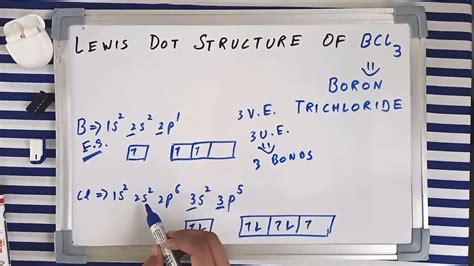 LEWIS DOT STRUCTURE OF BCL₃
BORON
TRICHLORIDE
B => 1S² 2S² 2p¹
E.S.
3 V.E.
3 U.E.
3 BONDS
Cl => 1S² 2S² 2p⁶ 3S² 3p⁵